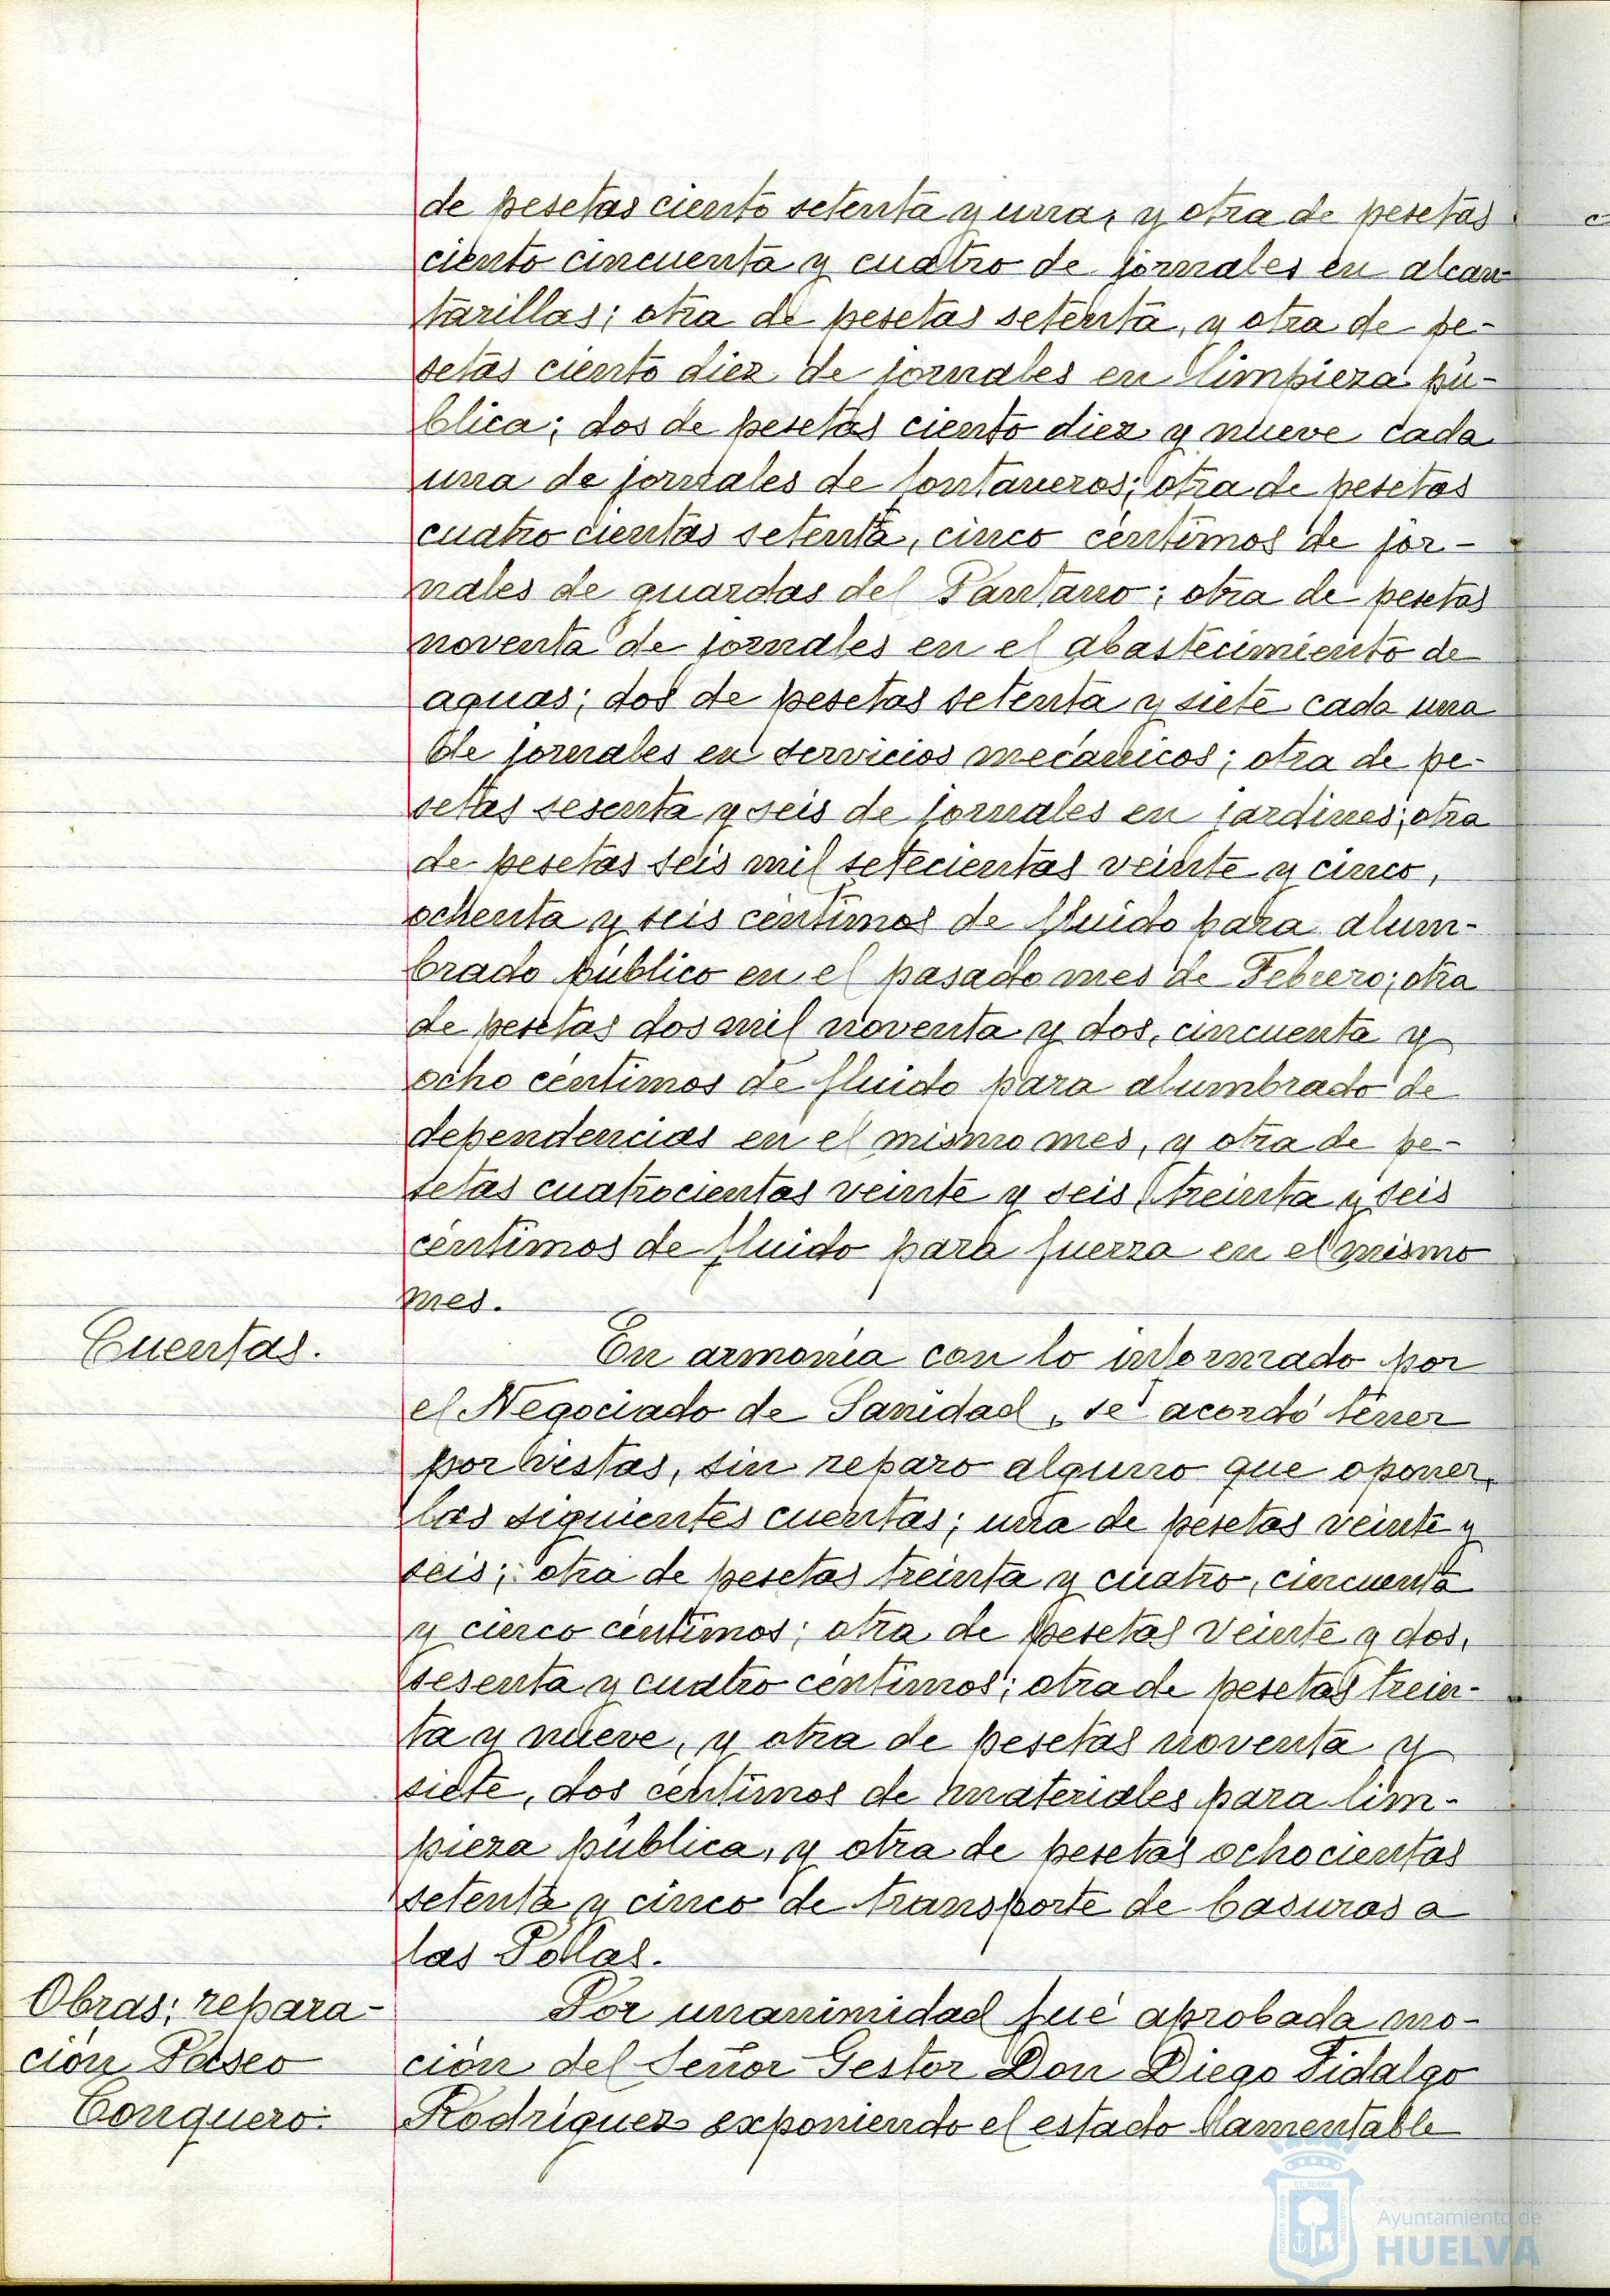 de pesetas ciento setenta y una, y otra de pesetas
ciento cincuenta y cuatro de jornales en alcan-
tarillas; otra de pesetas setenta, y otra de pe-
setas ciento diez de jornales en limpieza pú-
blica; dos de pesetas ciento diez y nueve cada
una de jornales de fontaneros; otra de pesetas
cuatro cientas setenta, cinco céntimos de jor-
nales de guardas del Pantano; otra de pesetas
noventa de jornales en el abastecimiento de
aguas; dos de pesetas setenta y siete cada una
de jornales en servicios mecánicos; otra de pe-
setas sesenta y seis de jornales en jardines; otra
de pesetas seis mil setecientas veinte y cinco,
ochenta y seis céntimos de fluido para alum-
brado público en el pasado mes de Febrero; otra
de pesetas dos mil noventa y dos, cincuenta y
ocho céntimos de fluido para alumbrado de
dependencias en el mismo mes, y otra de pe-
setas cuatrocientas veinte y seis, treinta y seis
céntimos de fluido para fuerza en el mismo
mes.
Cuentas.
En armonía con lo informado por
el Negociado de Sanidad, se acordó tener
por vistas, sin reparo alguno que oponer,
las siguientes cuentas; una de pesetas veinte y
seis; otra de pesetas treinta y cuatro, cincuenta
y cinco céntimos; otra de pesetas veinte y dos,
sesenta y cuatro céntimos; otra de pesetas trein-
ta y nueve, y otra de pesetas noventa y
siete, dos céntimos de materiales para lim-
pieza pública, y otra de pesetas ochocientas
setenta y cinco de transporte de basuras a
las Pollas.
Obras; repara-
ción Paseo
Conquero.
Por unanimidad fué aprobada mo-
ción del Señor Gestor Don Diego Fidalgo
Rodríguez exponiendo el estado lamentable
Ayuntamiento de
HUELVA